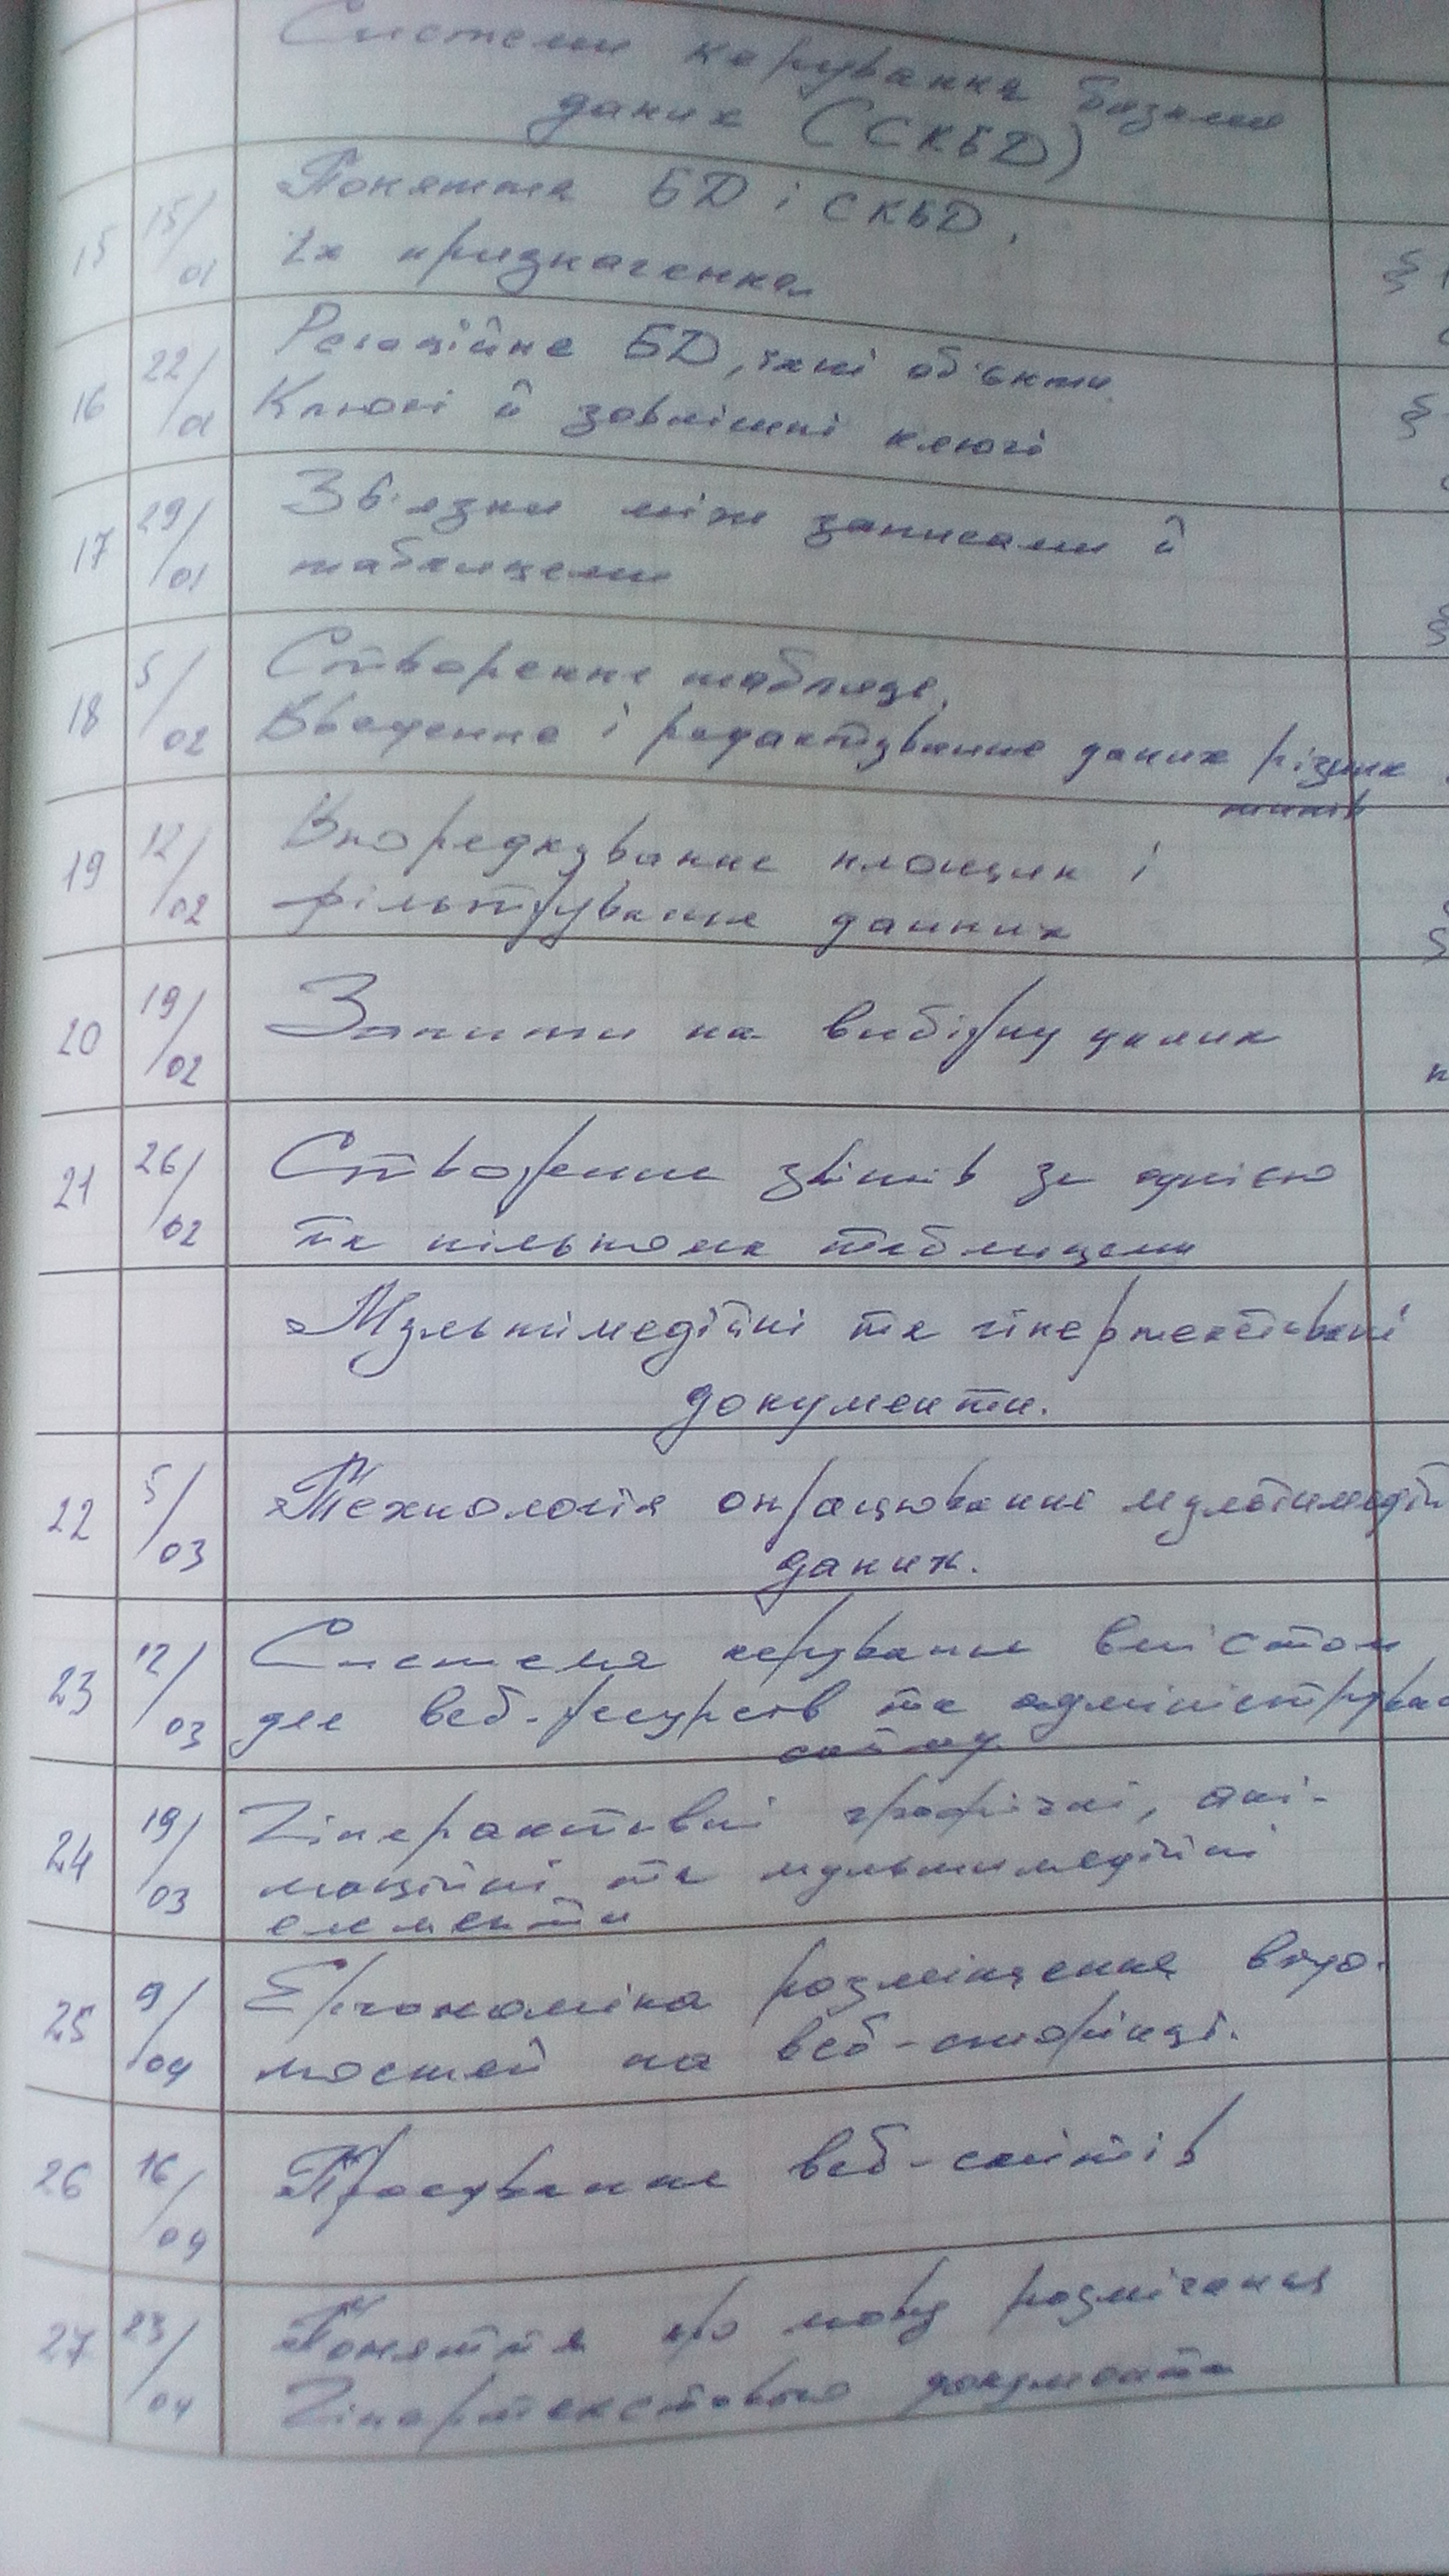 Системи керування базами
даних (СКБД)
15 15/01 Поняття БД і СКБД.
Їх призначення
§
16 22/01 Реляційне БД, їхні об'єкти.
Ключі й зовнішні ключі
§
17 29/01 Зв'язки між записами й
таблицями
§
18 5/02 Створення таблиць.
Введення і редагування даних різних
типів
19 12/02 Впорядкування пошук і
фільтрування данних
§
20 19/02 Запити на вибірку даних
21 26/02 Створення звітів за однією
та кількома таблицями
Мультимедійні та гіпертекстові
документи.
22 5/03 Технологія опрацювання мультимедій
даних.
23 12/03 Система керування вмістом
для веб-ресурсів та адмініструва
сайту
24 19/03 Гіперактивні графічні, ані-
маційні та мультимедійні
елементи
25 9/04 Ергономіка розміщення відо-
мостей на веб-сторінці.
26 16/04 Просування веб-сайтів
27 23/04 Поняття про мову розмічання
Гіпертекстового документа